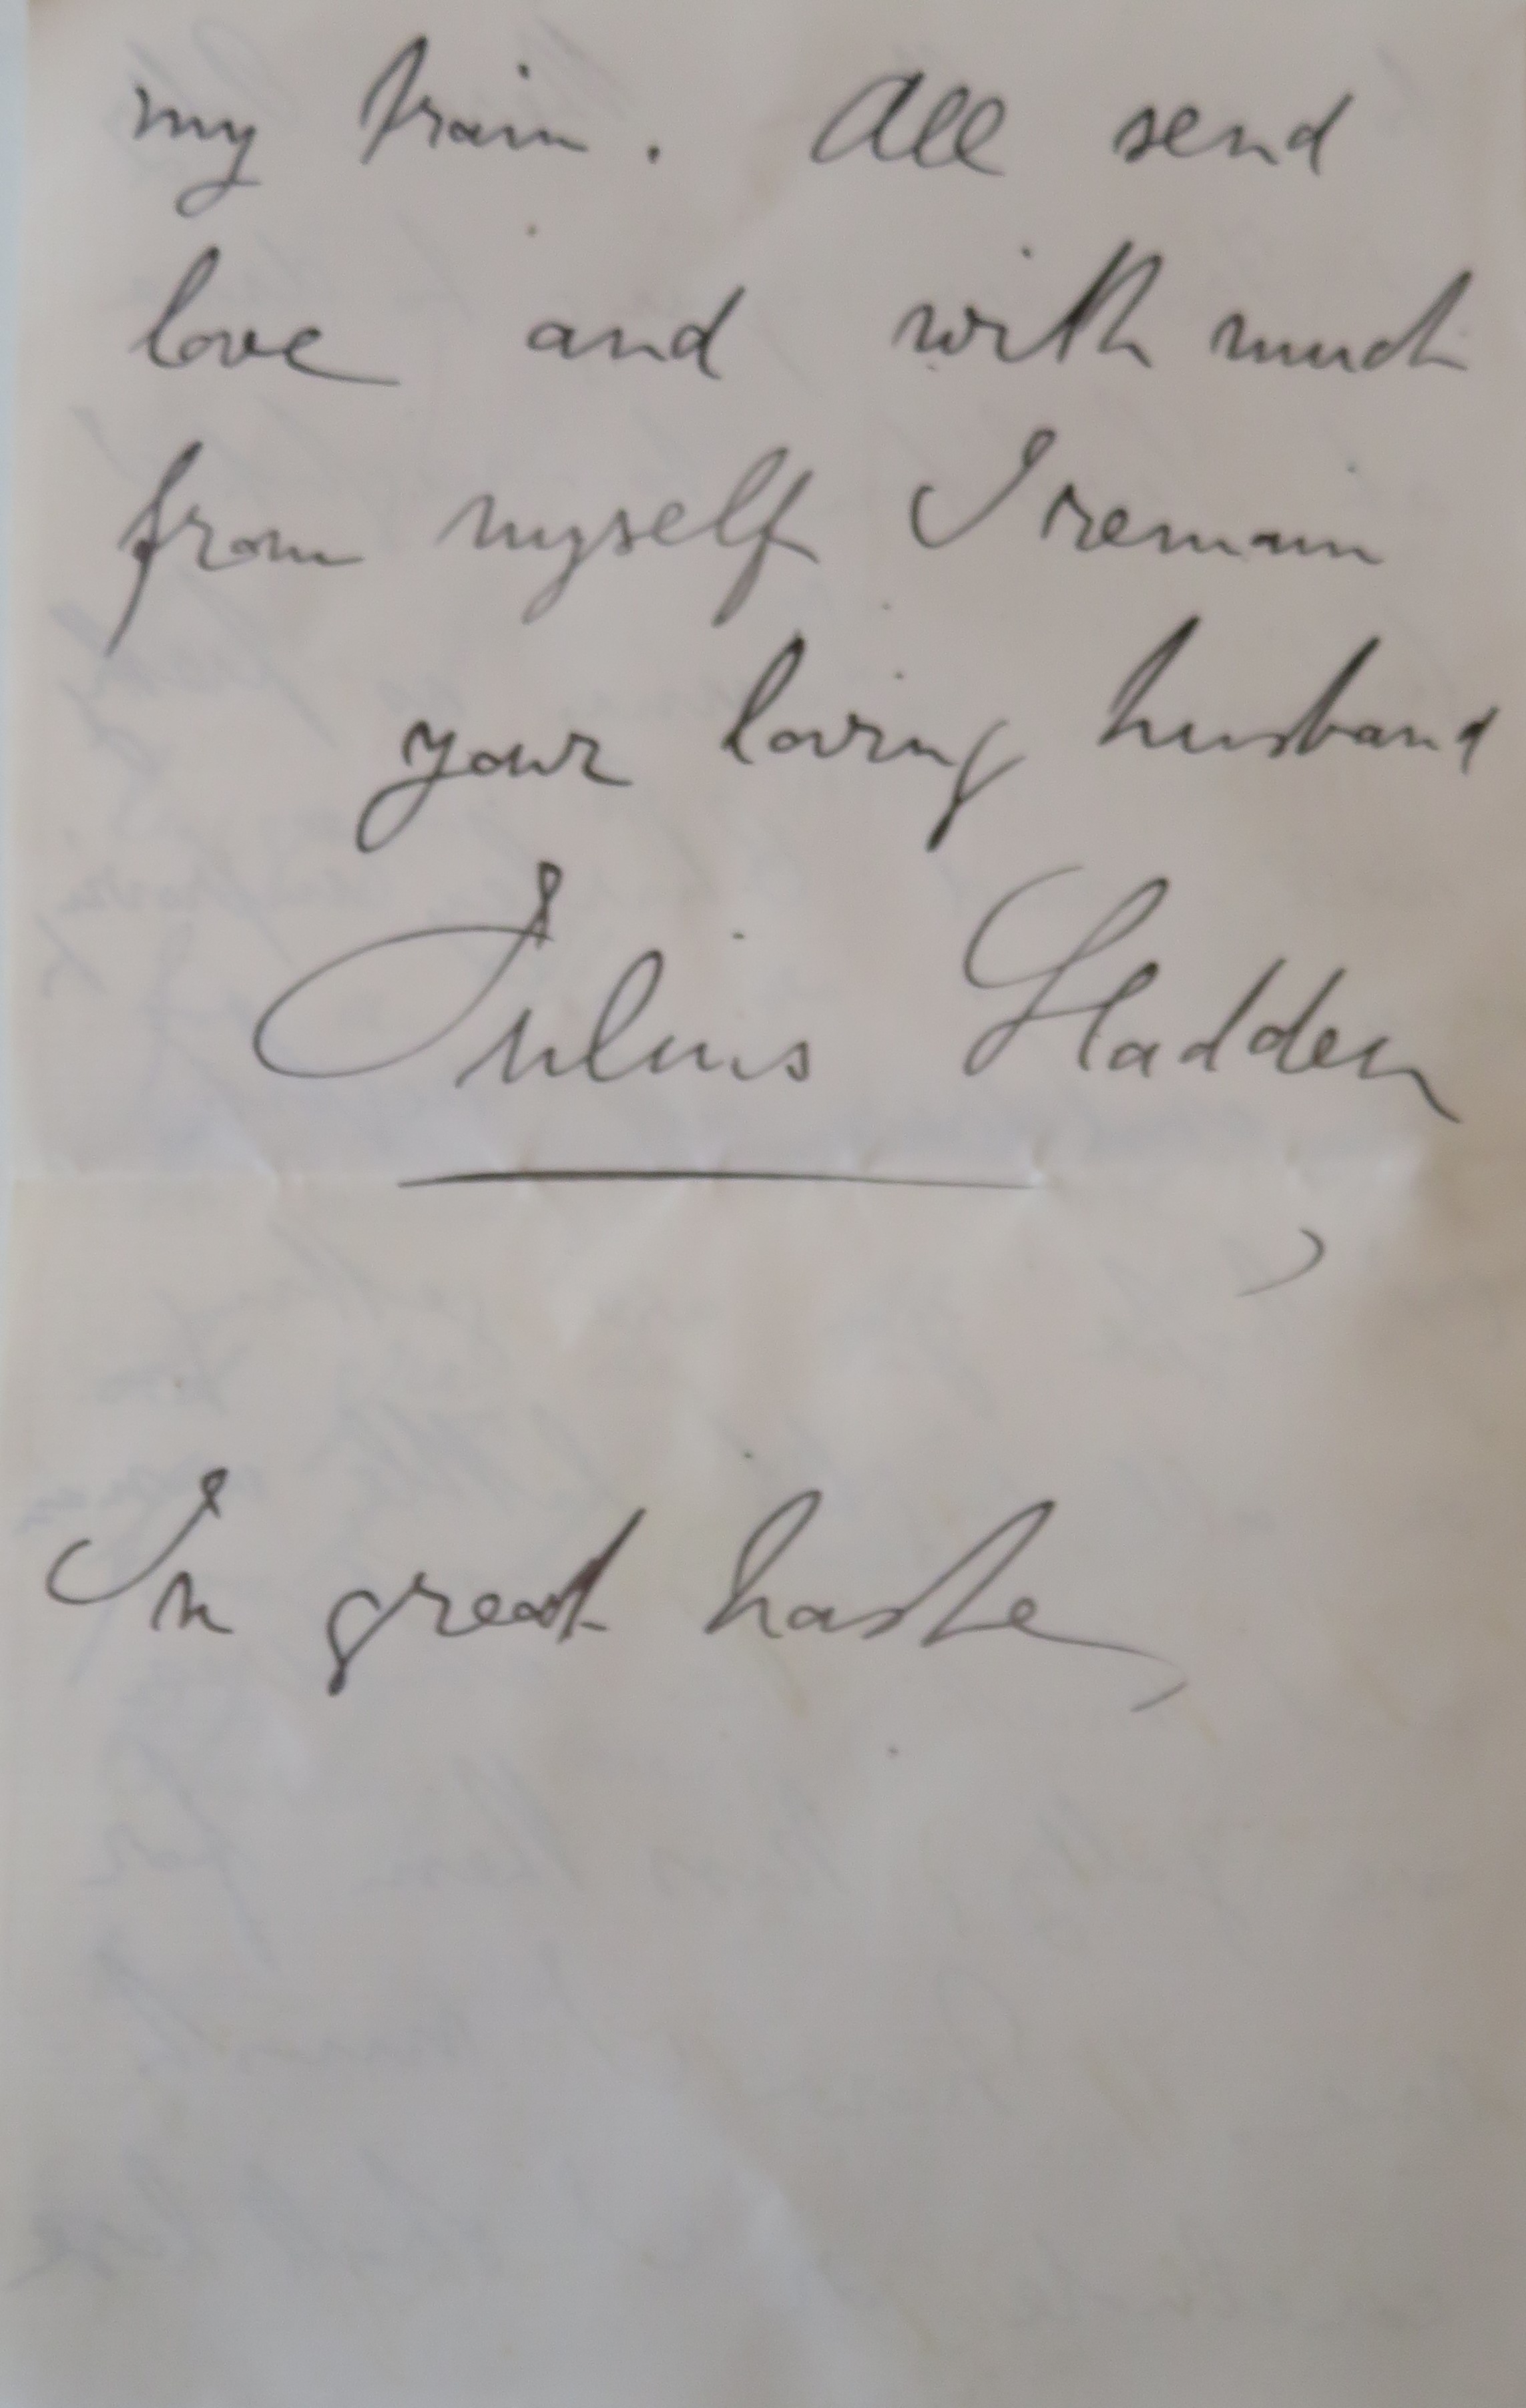 my train. All send
love and with much
from myself I remain
your loving husband
Julius Hadden
In great haste,